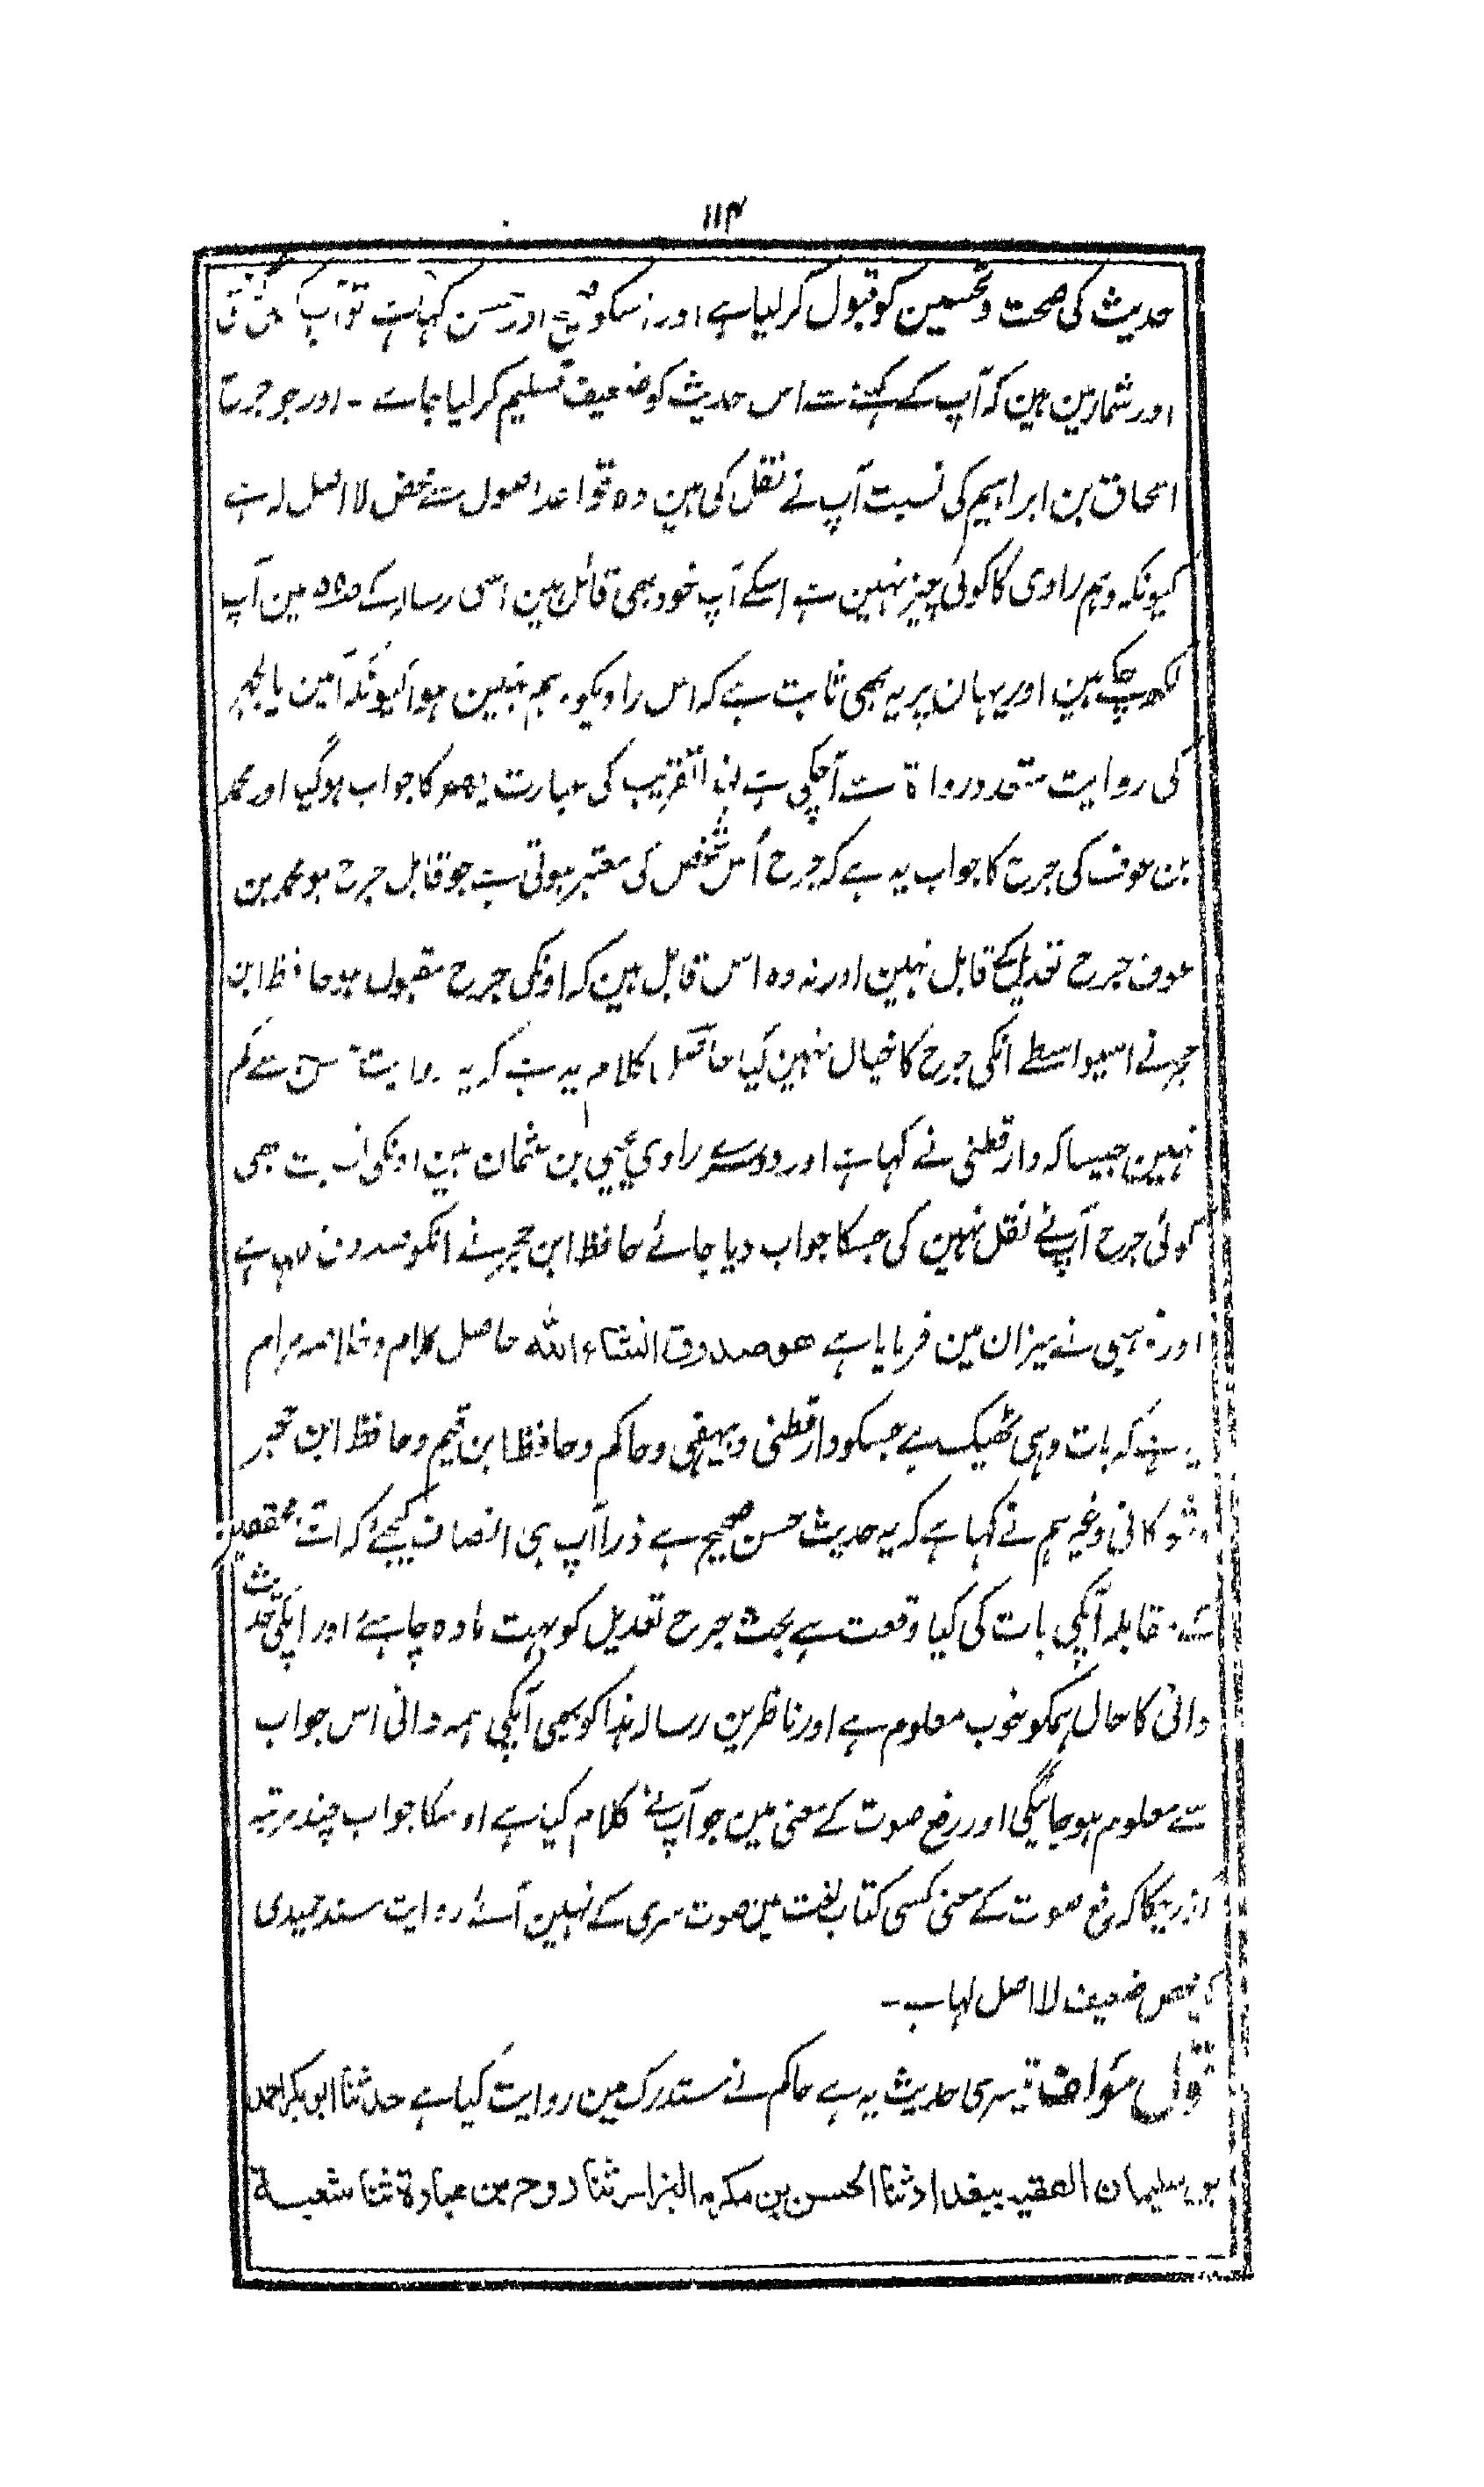 ۱۱۴
حدیث کی صحت و تحسین کو قبول کر لیا ہے اور اسکو صحیح اور حسن کہا ہے تو آپ کس
اور شمار مین ہین کہ آپ کے کہنے سے اس حدیث کو ضعیف تسلیم کر لیا جاے - اور جو جرح
اسحاق بن ابراہیم کی نسبت آپ نے نقل کی ہین وہ قواعد اصول سے محض لا اصل لہ ہے
کیونکہ وہم راوی کا کوئی چیز نہین ہے اسکے آپ خود بھی قائل ہین اسی رسالہ کے مین آپ
لکھ چکے ہین اور یہان پر یہ بھی ثابت ہے کہ اس راویکو وہم نہین ہوا کیونکہ آمین بالجہر
کی روایت متعدد رواۃ سے آچکی ہے لہذا تقریب کی عبارت یھم کا جواب ہوگیا اور محمد
بن عوف کی جرح کا جواب یہ ہے کہ جرح اُس شخص کی معتبر ہوتی ہے جو قابل جرح ہو محمد بن
عوف جرح تعدیل کے قابل نہین اور نہ وہ اس قابل ہین کہ اونکی جرح مقبول ہو حافظ ابن
حجر نے اسیواسطے انکی جرح کا خیال نہین کیا حاصل کلام یہ ہے کہ یہ روایت حسن سے کم
نہین جیسا کہ دارقطنی نے کہا ہے اور دوسرے راوی یحیی بن عثمان ہین اونکی نسبت بھی
کوئی جرح آپنے نقل نہین کی جسکا جواب دیا جائے حافظ ابن حجر نے انکو صدوق کہا ہے
اور ذہبی نے میزان مین فرمایا ہے ھو صدوق انشاء اللہ حاصل کلام و خلاصہ مرام
یہ ہے کہ بات وہی ٹھیک ہے جسکو دارقطنی و بیہقی و حاکم و حافظ ابن قیم و حافظ ابن حجر
و شوکانی وغیرہم نے کہا ہے کہ یہ حدیث حسن صحیح ہے ذرا آپ ہی انصاف کیجئے کہ اتنے محققین
کے مقابلہ آپکی بات کی کیا وقعت ہے بحث جرح تعدیل کو بہت مادہ چاہئے اور آپکی حدیث
دانی کا حال ہمکو خوب معلوم ہے اور ناظرین رسالہ ہذا کو بھی آپکی ہمہ دانی اس جواب
سے معلوم ہو جائیگی اور رفع صوت کے معنی مین جو آپنے کلام کیا ہے اوسکا جواب چند مرتبہ
گذر چکا کہ رفع صوت کے معنی کسی کتاب لغت مین صوت سری کے نہین آئے روایت مسند حمیدی
کی محض ضعیف لا اصل لہا ہے -
قول مؤلف تیسری حدیث یہ ہے حاکم نے مستدرک مین روایت کیا ہے حدثنا ابو بکر احمد
بن سلیمان الفقیہ ببغداد ثنا الحسن بن مکرم البزار ثنا روح بن عبادۃ ثنا شعبۃ